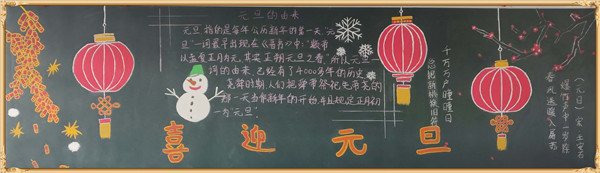 元旦的由来
元旦 指的是每年公历新年的第一天"元
旦"一词最早出现在《晋书》中:"颛帝
以孟春正月为元,其实正朔元旦之春"所以元旦一
词的由来,已经有了4000多年的历史
尧舜时期,人们把舜帝祭祀先帝尧的
那一天当作新年的开始,并且规定正月初
一为元旦!
千门万户曈曈日
总把新桃换旧符
《元日》 宋 王安石
爆竹声中一岁除
春风送暖入屠苏
喜迎元旦